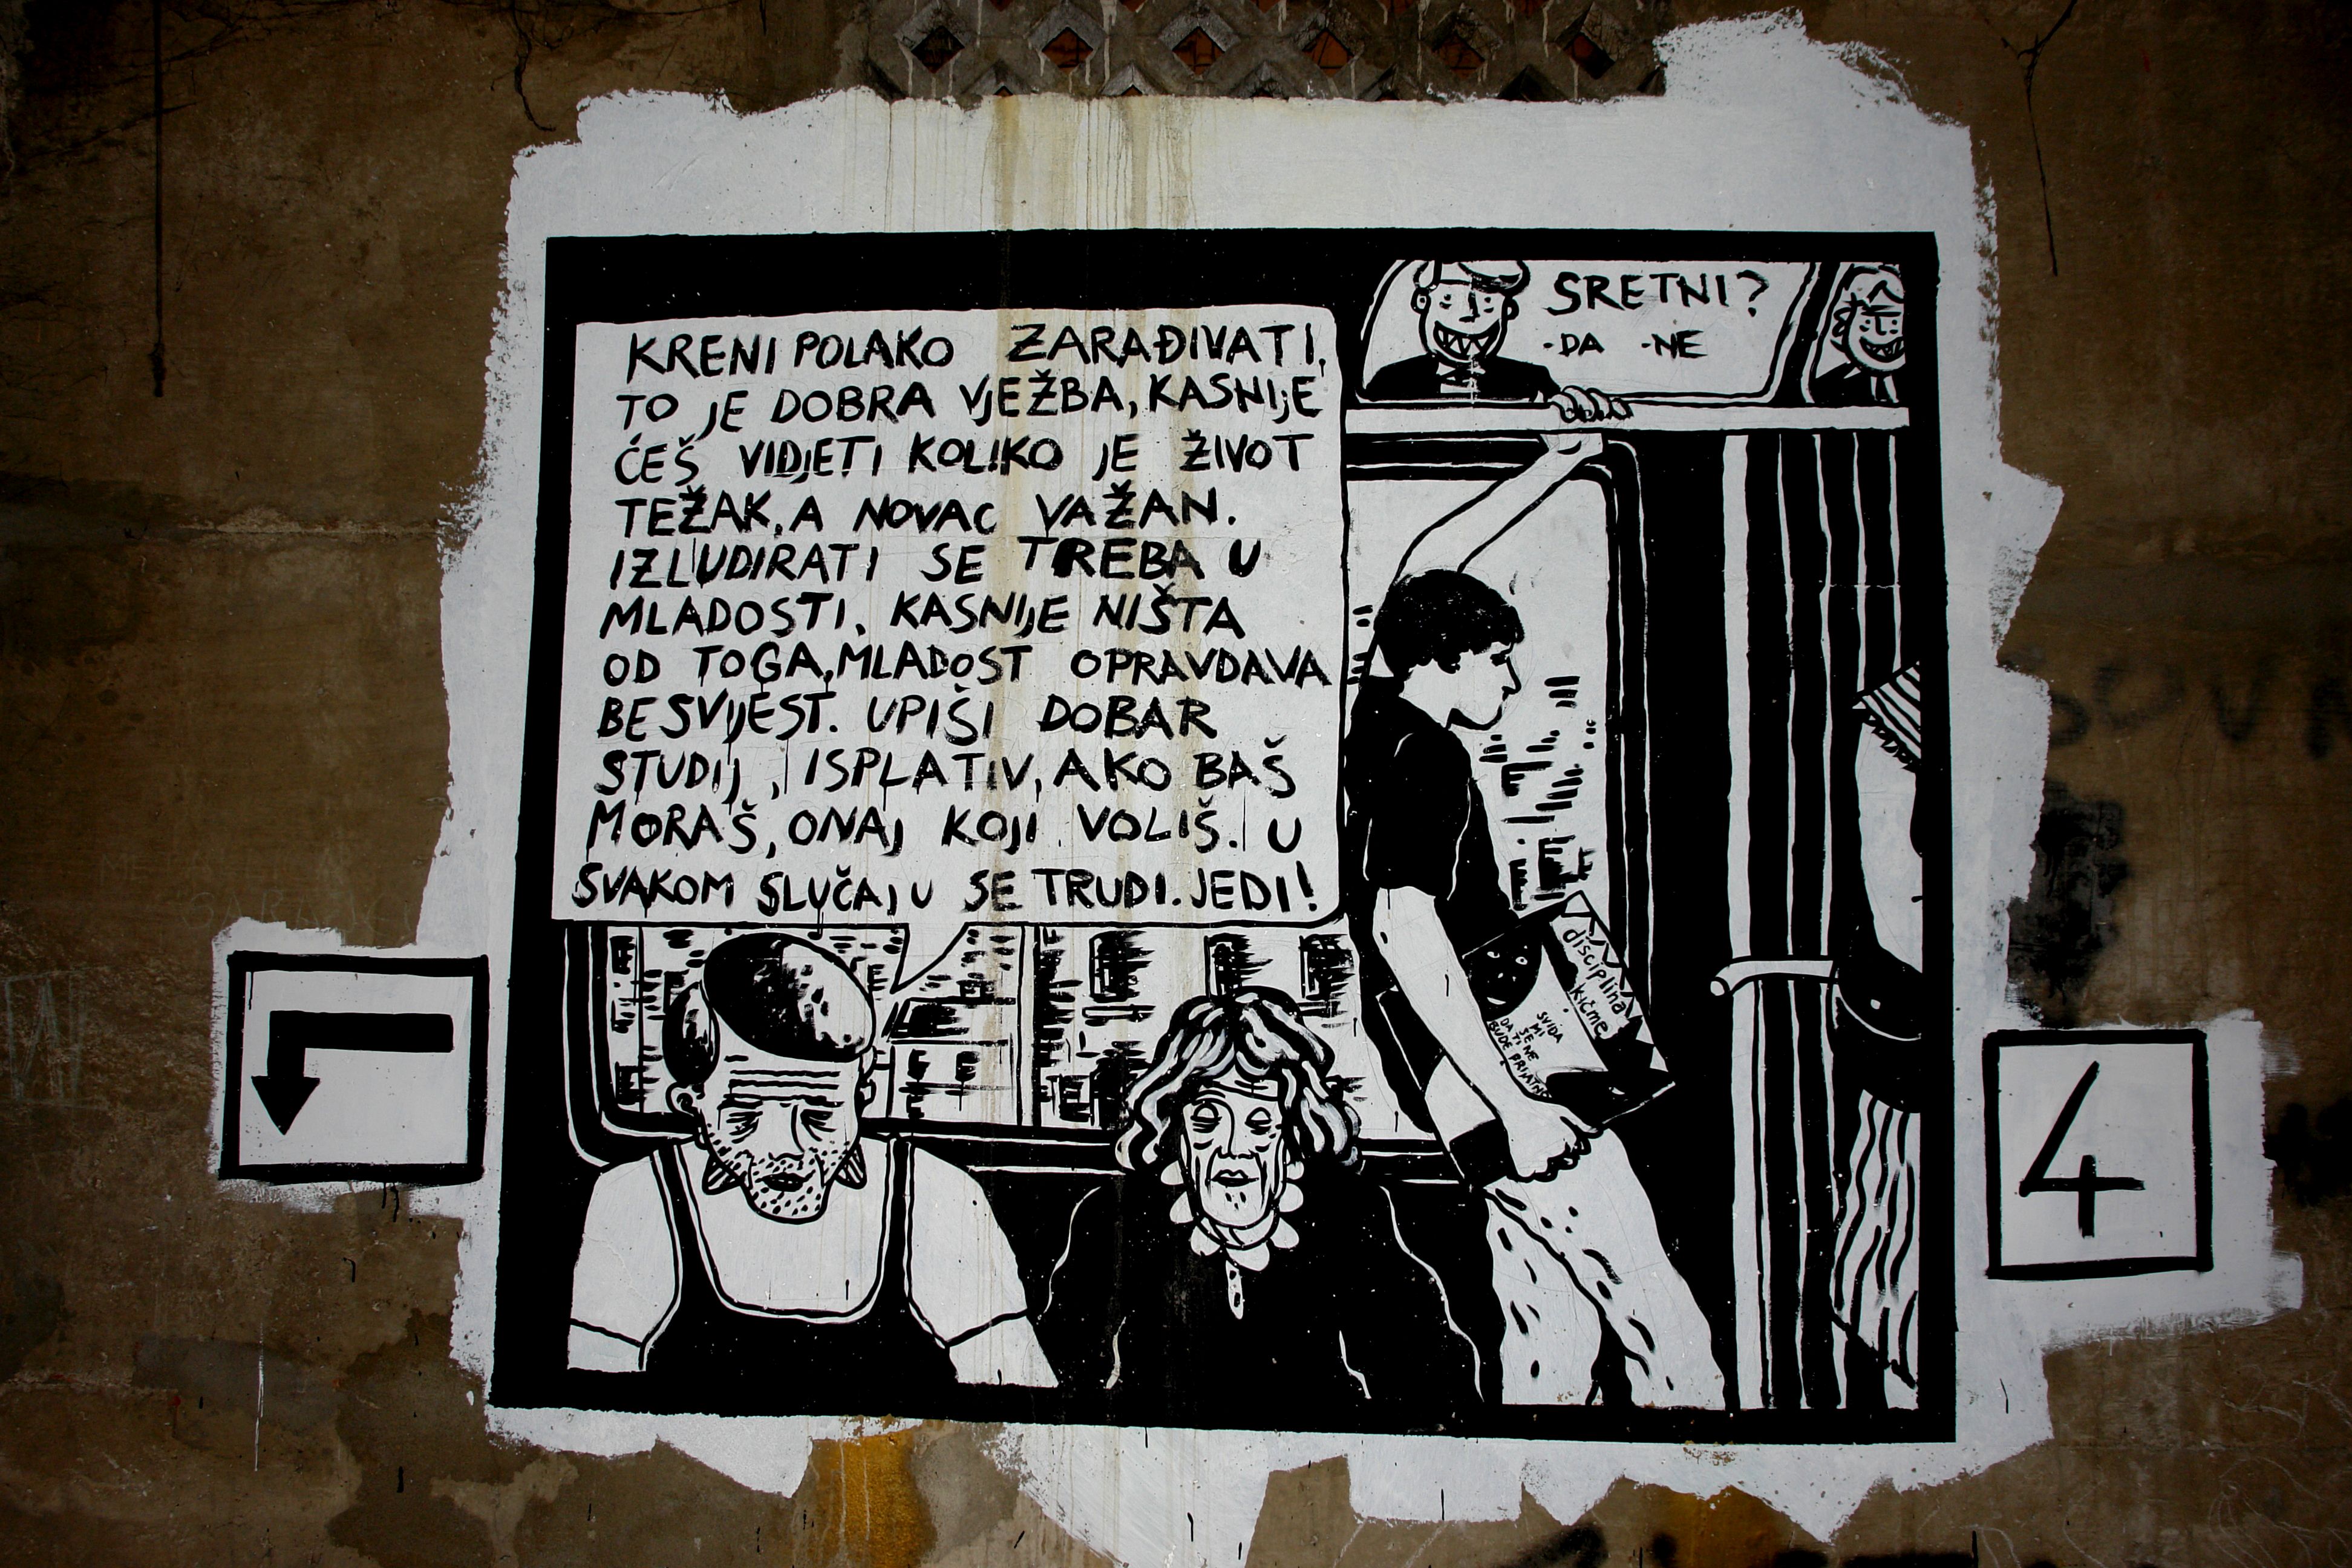 KRENI POLAKO ZARAĐIVATI.
TO JE DOBRA VJEŽBA, KASNIJE
ĆEŠ VIDJETI KOLIKO JE ŽIVOT
TEŽAK, A NOVAC VAŽAN.
IZLUDIRATI SE TREBA U
MLADOSTI. KASNIJE NIŠTA
OD TOGA, MLADOST OPRAVDAVA
BESVIJEST. UPIŠI DOBAR
STUDIJ, ISPLATIV, AKO BAŠ
MORAŠ, ONAJ KOJI VOLIŠ. U
SVAKOM SLUČAJU SE TRUDI. JEDI!
SRETNI?
-DA -NE
disciplina
kičme
SVIĐA
MI
SE NE
DA TI
BUDE PRIJATNO
4